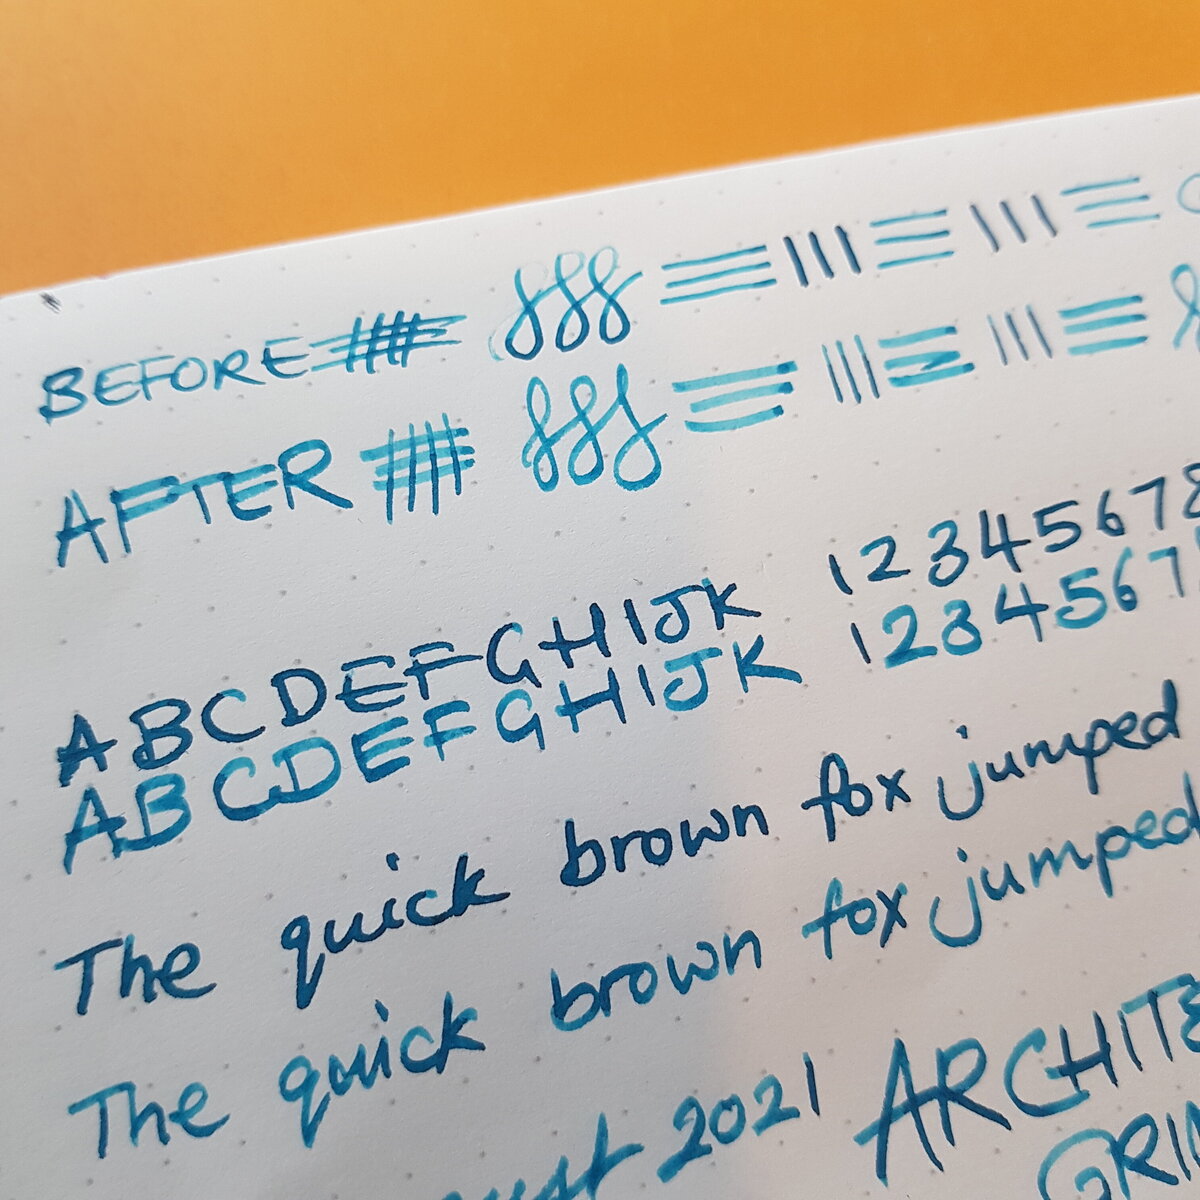 BEFORE
AFTER
A B C D E F G H I J K 1 2 3 4 5 6 7 8
A B C D E F G H I J K 1 2 3 4 5 6 7
The quick brown fox jumped
The quick brown fox jumped
2021 ARCHITE
GRIN